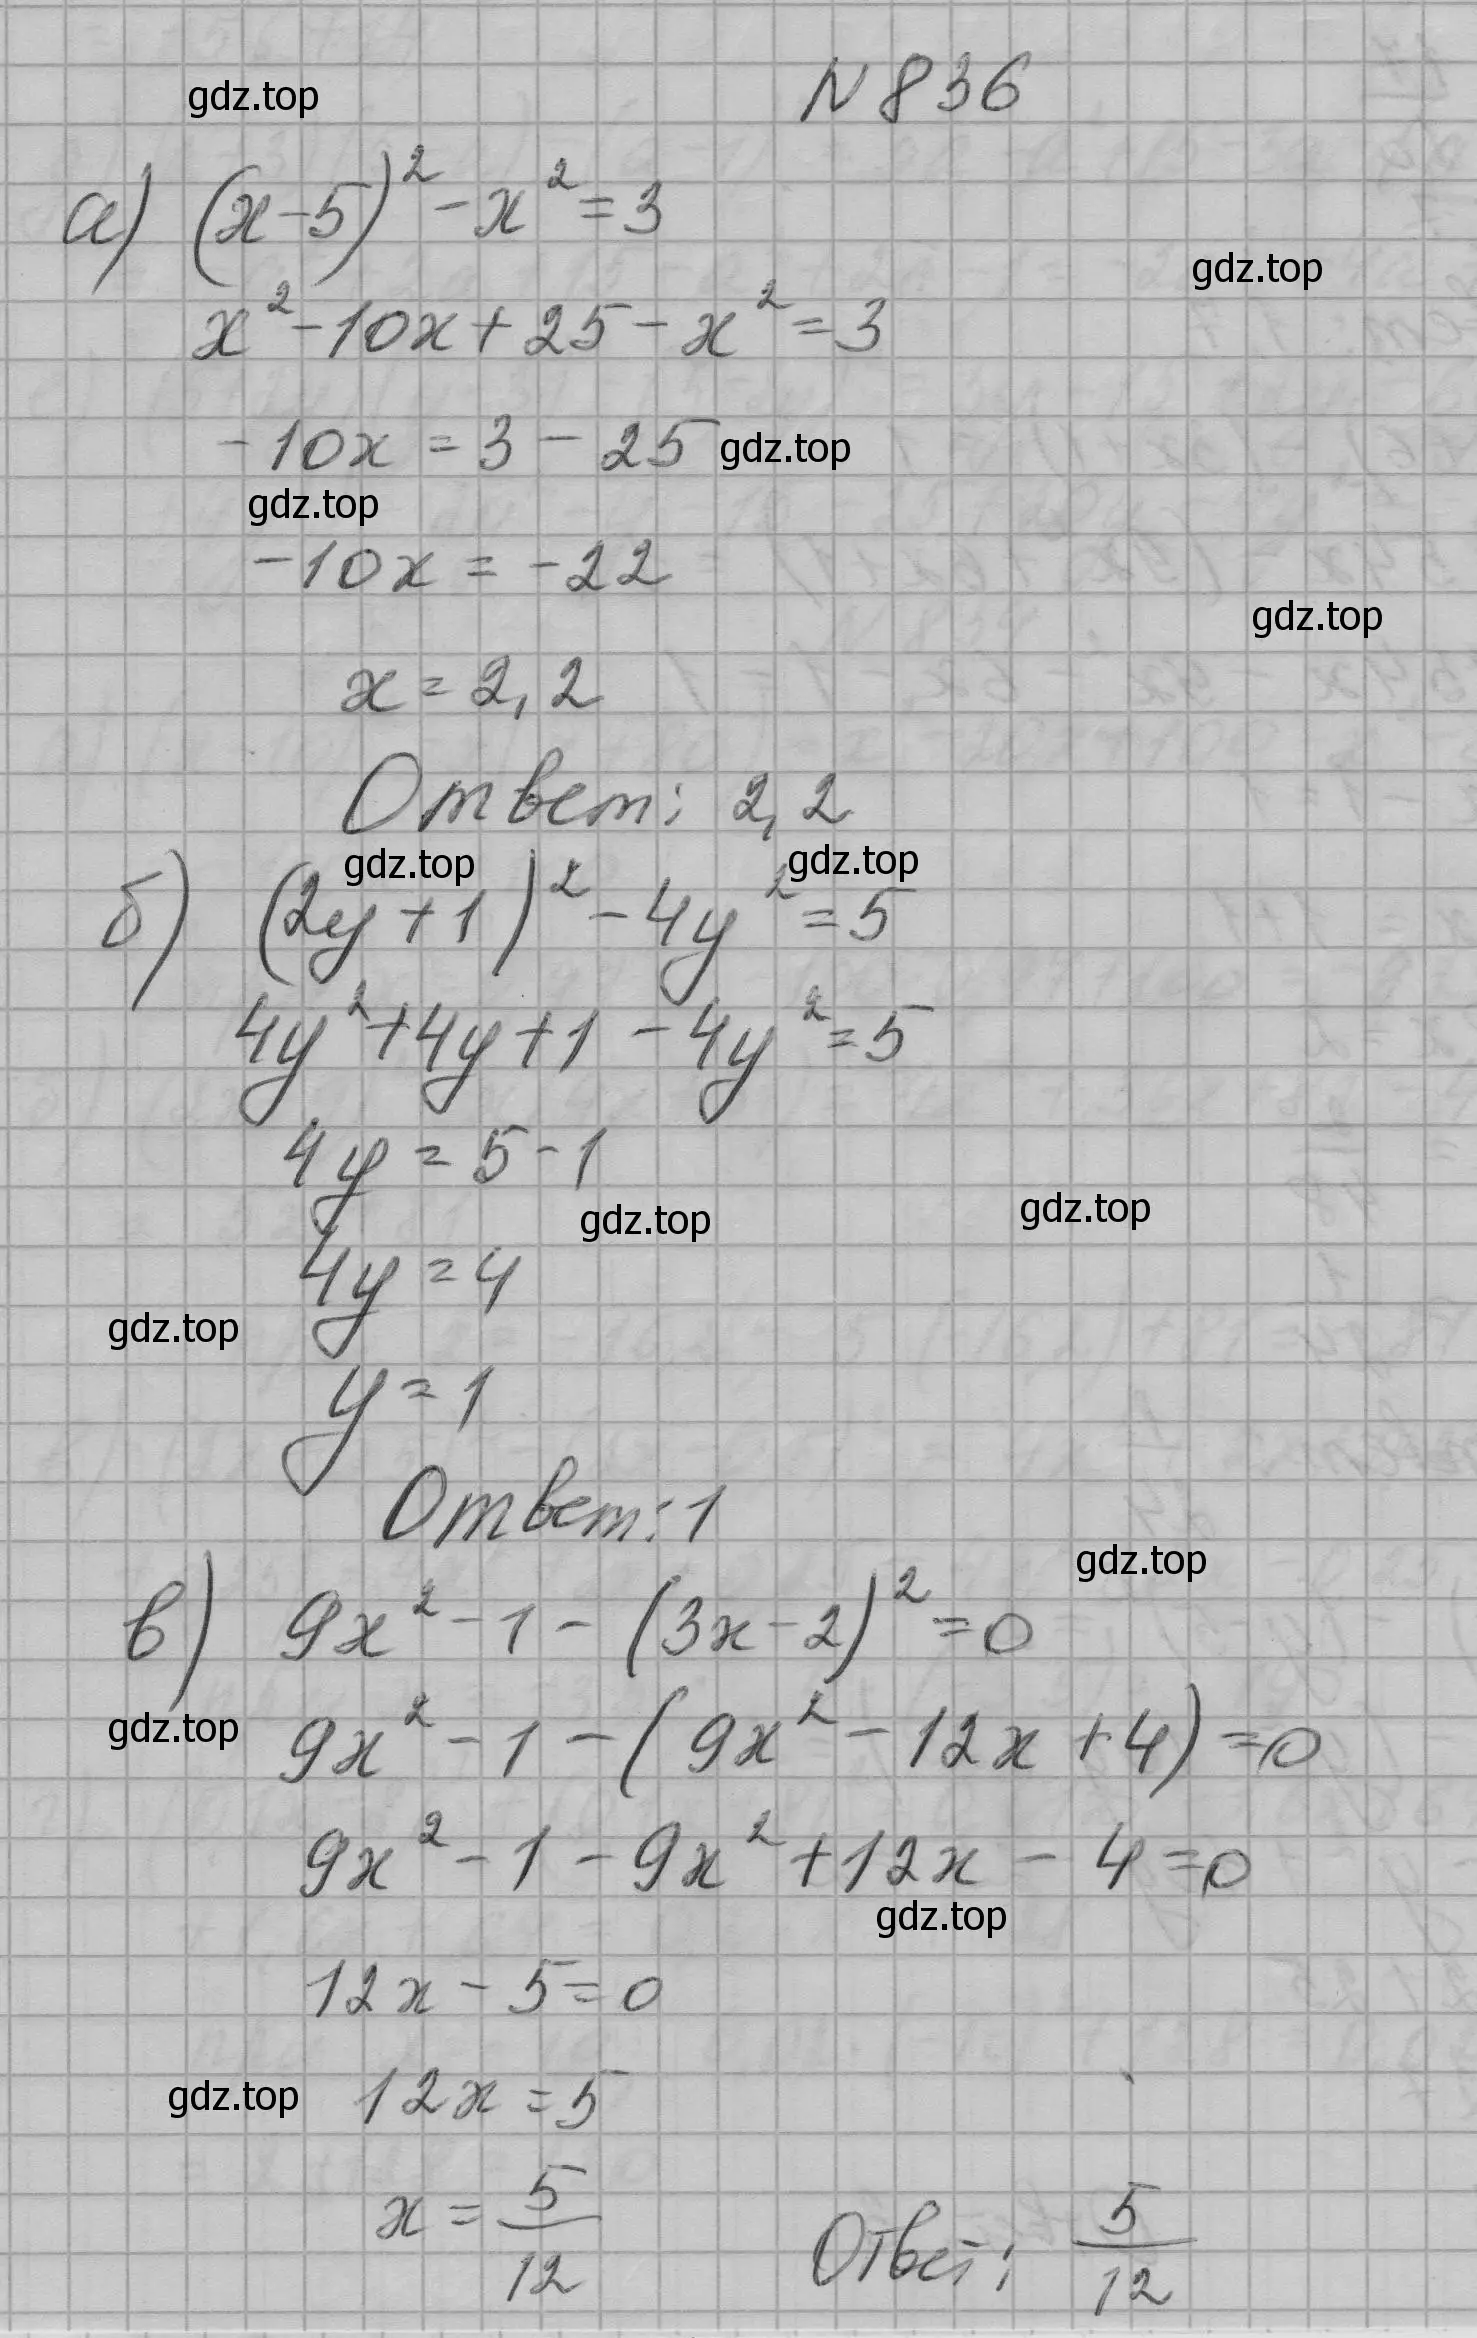 N 836
gdz.top
а) (x-5)² - x² = 3
gdz.top
x² - 10x + 25 - x² = 3
-10x = 3 - 25
gdz.top
gdz.top
-10x = -22
gdz.top
x = 2,2
Ответ: 2,2
gdz.top
gdz.top
б) (2y+1)² - 4y² = 5
4y² + 4y + 1 - 4y² = 5
4y = 5 - 1
gdz.top
gdz.top
4y = 4
gdz.top
y = 1
Ответ: 1
gdz.top
в) 9x² - 1 - (3x-2)² = 0
gdz.top
9x² - 1 - (9x² - 12x + 4) = 0
9x² - 1 - 9x² + 12x - 4 = 0
gdz.top
12x - 5 = 0
gdz.top
12x = 5
x = 5/12 Ответ: 5/12